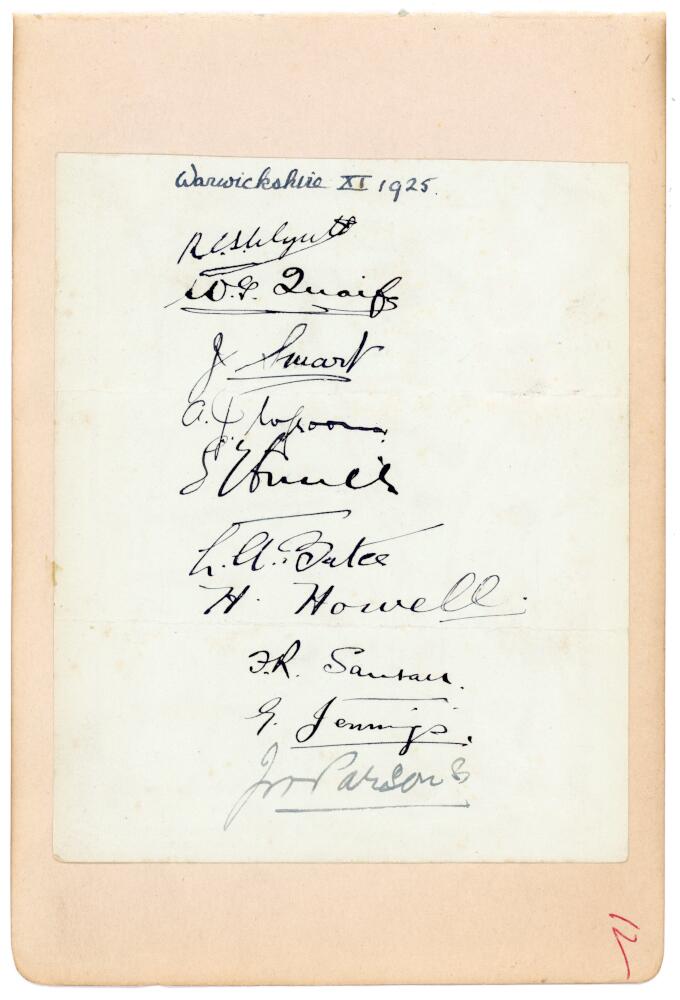 Warwickshire XI 1925.
R.E.S. Wyatt
W.G. Quaife
J Smart
A.
L.A. Bates
H. Howell.
F.R. Santall.
G. Jennings.
Parsons
12